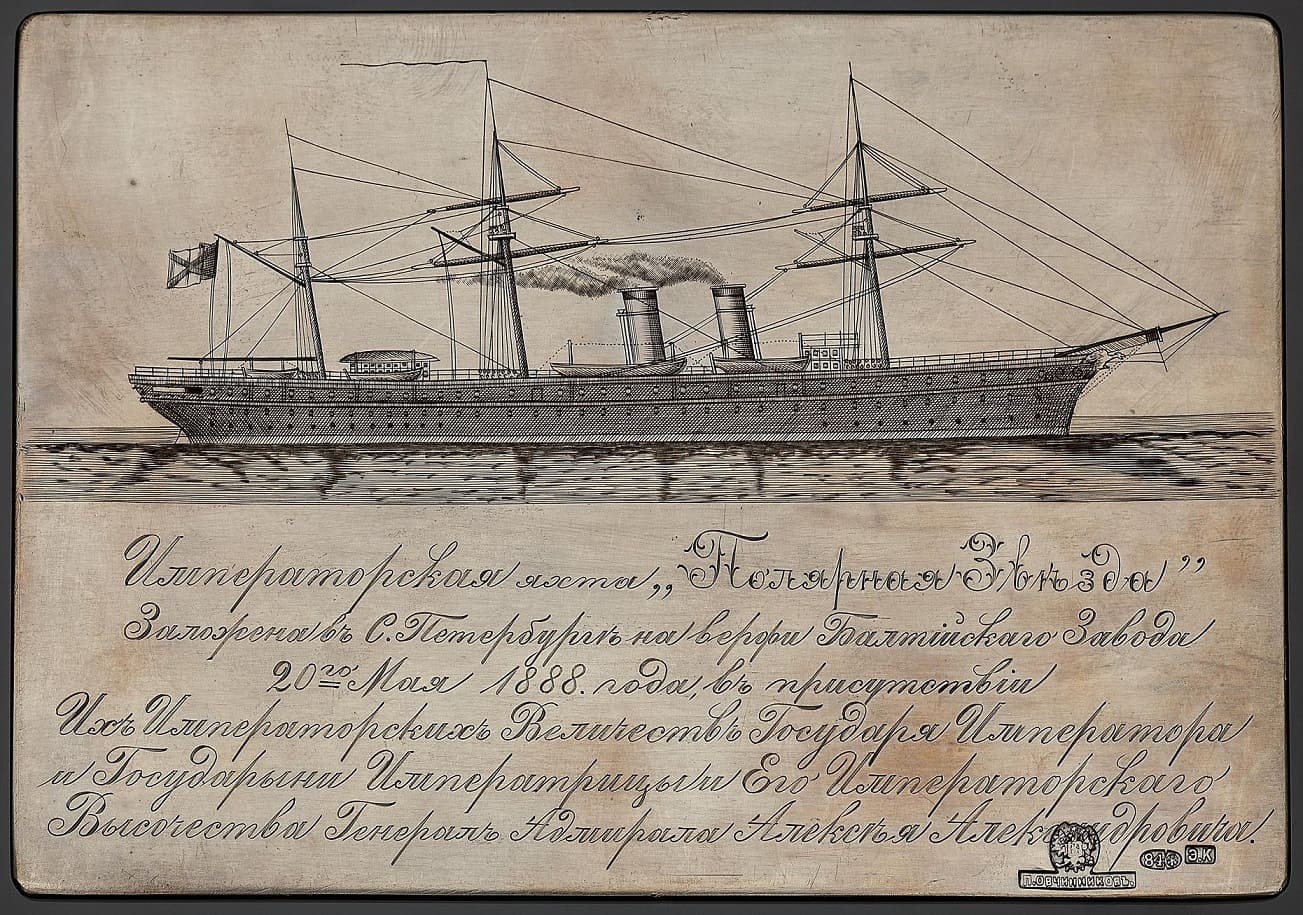 Императорская яхта „Полярная Звѣзда”
Заложена въ С. Петербургѣ на верфи Балтійскаго Завода
20го Мая 1888. года, въ присутствіи
Ихъ Императорскихъ Величествъ Государя Императора
и Государыни Императрицы и Его Императорскаго
Высочества Генералъ Адмирала Алексѣя Александровича.
П.ОВЧИННИКОВЪ.
84
Э.К